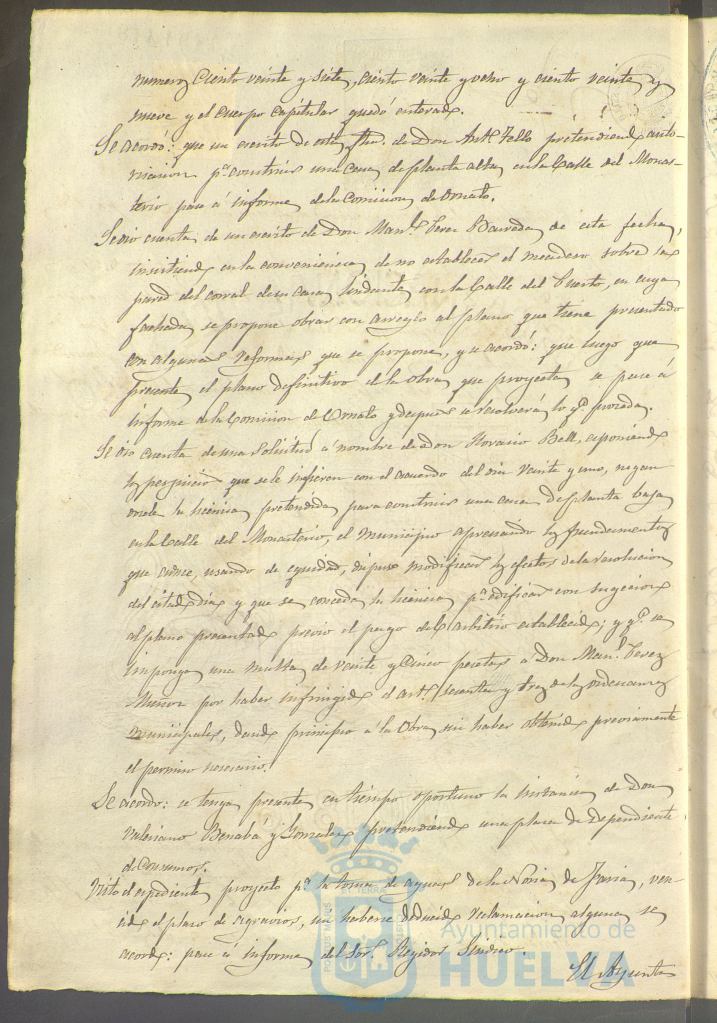 numeros Ciento veinte y siete, ciento veinte y ocho y ciento veinte y
nueve y el cuerpo capitular quedó enterado.
Se acordó: que un escrito de esta fha. de Don Antº Tello pretendiendo auto-
rizacion pª construir una casa de planta alta en la Calle del Monas-
terio pase á informe de la Comision de Ornato.
Se dio cuenta de un escrito de Don Manl. Perez Barreda de esta fecha,
insistiendo en la conveniencia de no establecer el meadero sobre la
pared del corral de su casa lindante con la Calle del Puerto, en cuya
fachada se propone obrar con arreglo al plano que tiene presentado
con algunas reformas que se propone, y se acordó: que luego que
presente el plano definitivo de la obra que proyecta se pase á
informe de la Comision de Ornato y despues se resolverá lo qe. proceda.
Se dio cuenta de una solicitud á nombre de Don Horacio Bell, esponiendo
los perjuicios que se le infieren con el acuerdo del dia veinte y uno, negan
dosele la licencia pretendida para construir una casa de planta baja
en la Calle del Monasterio, el municipio apreciando los fundamentos
que aduce, usando de equidad, dispuso modificar los efectos de la resolucion
del citado dia y que se conceda la licencia pª edificar con sugecion
al plano presentado previo el pago del arbitrio establecido; y qe. se
imponga una multa de veinte y Cinco pesetas á Don Manl. Perez
Munoz por haber infringido el artº sesenta y tres de las ordenanzas
municipales, dando principio á la Obra sin haber obtenido previamente
el permiso necesario.
Se acordo: se tenga presente en tiempo oportuno la instancia de Don
Valeriano Benabá y Gonzalez pretendiendo una plaza de Dependiente
de Consumos.
Visto el espediente proyecto pª la toma de aguas de la Noria de Faria, ven-
cido el plazo de agravios, sin haberse deducido reclamacion alguna se
acordó: pase á informe del Sor. Regidor Sindico.
El Ayunta
Ayuntamiento de
HUELVA